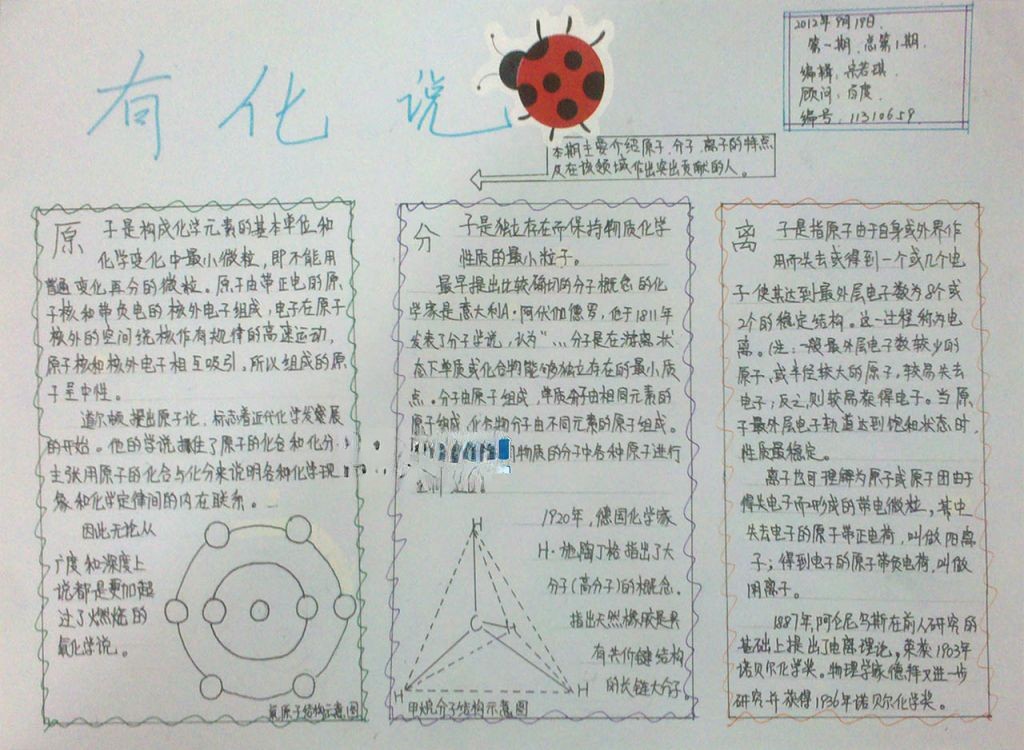 有化说
2012年9月19日
第一期.总第1期.
编辑:宋若琪.
顾问:百度.
编号:11310659
本期主要介绍原子.分子.离子的特点
及在该领域作出突出贡献的人。
原子是构成化学元素的基本单位和
化学变化中最小微粒,即不能用
普通变化再分的微粒。原子由带正电的原
子核和带负电的核外电子组成,电子在原子
核外的空间绕核作有规律的高速运动,
原子核和核外电子相互吸引。所以组成的原
子呈中性。
道尔顿提出原子论,标志着近代化学发展
的开始。他的学说抓住了原子的化合和化分
主张用原子的化合与化分来说明各种化学现
象和化学定律间的内在联系。
因此无论从
广度和深度上
说都是更加超
过了燃烧的
氧化学说。
氧原子结构示意图
分子是独立存在而保持物质化学
性质的最小粒子。
最早提出比较确切的分子概念的化
学家是意大利A·阿伏伽德罗,他于1811年
发表了分子学说,认为“...分子是在游离状
态下单质或化合物能够独立存在的最小质
点。分子由原子组成,单质分子由相同元素的
原子组成,化合物分子由不同元素的原子组成。
物质的分子中各种原子进行
1920年,德国化学家
H·施陶丁格指出了大
分子(高分子)的概念.
指出天然橡胶是具
有共价键结构
的长链大分子.
H
C
H
H
H
甲烷分子结构示意图
离子是指原子由于自身或外界作
用而失去或得到一个或几个电
子使其达到最外层电子数为8个或
2个的稳定结构。这一过程称为电
离。(注:一般最外层电子数较少的
原子,或半径较大的原子,较易失去
电子,反之,则较易获得电子。当原
子最外层电子轨道达到饱和状态时,
性质最稳定。
离子也可理解为原子或原子团由于
得失电子而形成的带电微粒,其中
失去电子的原子带正电荷,叫做阳离
子;得到电子的原子带负电荷,叫做
阴离子。
1887年,阿仑尼乌斯在前人研究的
基础上提出了电离理论。荣获1903年
诺贝尔化学奖。物理学家德拜又进一步
研究并获得1936年诺贝尔化学奖。